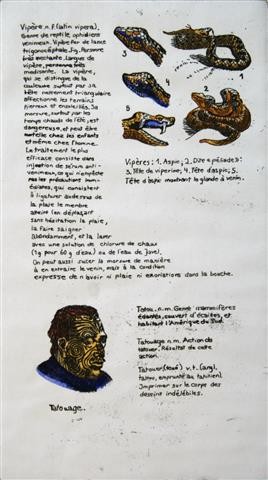 Vipère n.f. (latin vipera).
Genre de reptile, ophidiens
venimeux. Vipère fer de lance
trigonocéphale. Fig. Personne
très méchante. Langue de
vipère, personne très
médisante. La vipère,
qui se distingue de la
couleuvre surtout par sa
tête nettement triangulaire
affectionne les terrains
pierreux et ensoleillés. Sa
morsure, surtout par les
temps chauds de l'été, est
dangereuse, et peut être
mortelle chez les enfants
et même chez l'homme.
Le traitement le plus
efficace consiste dans
injection de sérum anti-
venimeux, ce qui n'empêche
pas les précautions immé-
diates, qui consistent
à ligaturer au dessus de
la plaie le membre
atteint (en déplaçant
sans hésitation la plaie,
la faire saigner
abondamment, et la laver
avec une solution de chlorure de chaux
(1g pour 60 g d'eau) ou de l'eau de javel.
On peut aussi sucer la morsure de manière
à en extraire le venin, mais à la condition
expresse de n'avoir ni plaie ni excoriations dans la bouche.
3
1
4
5
2
Vipères: 1. Aspic; 2. Dite "péliade" 3:
3. Tête de vipérine; 4. Tête d'aspic; 5.
Tête d'aspic montrant la glande à venin.
Tatou. n.m. Genre mammifères
édentés, couvert d'écailles, et
habitant l'Amérique du Sud.
Tatouage n.m. Action de
tatouer. Résultat de cette
action.
Tatouer (toué) v.t. (angl.
tattoo, emprunté au tahitien).
Imprimer sur le corps des
dessins indélébiles.
Tatouage.